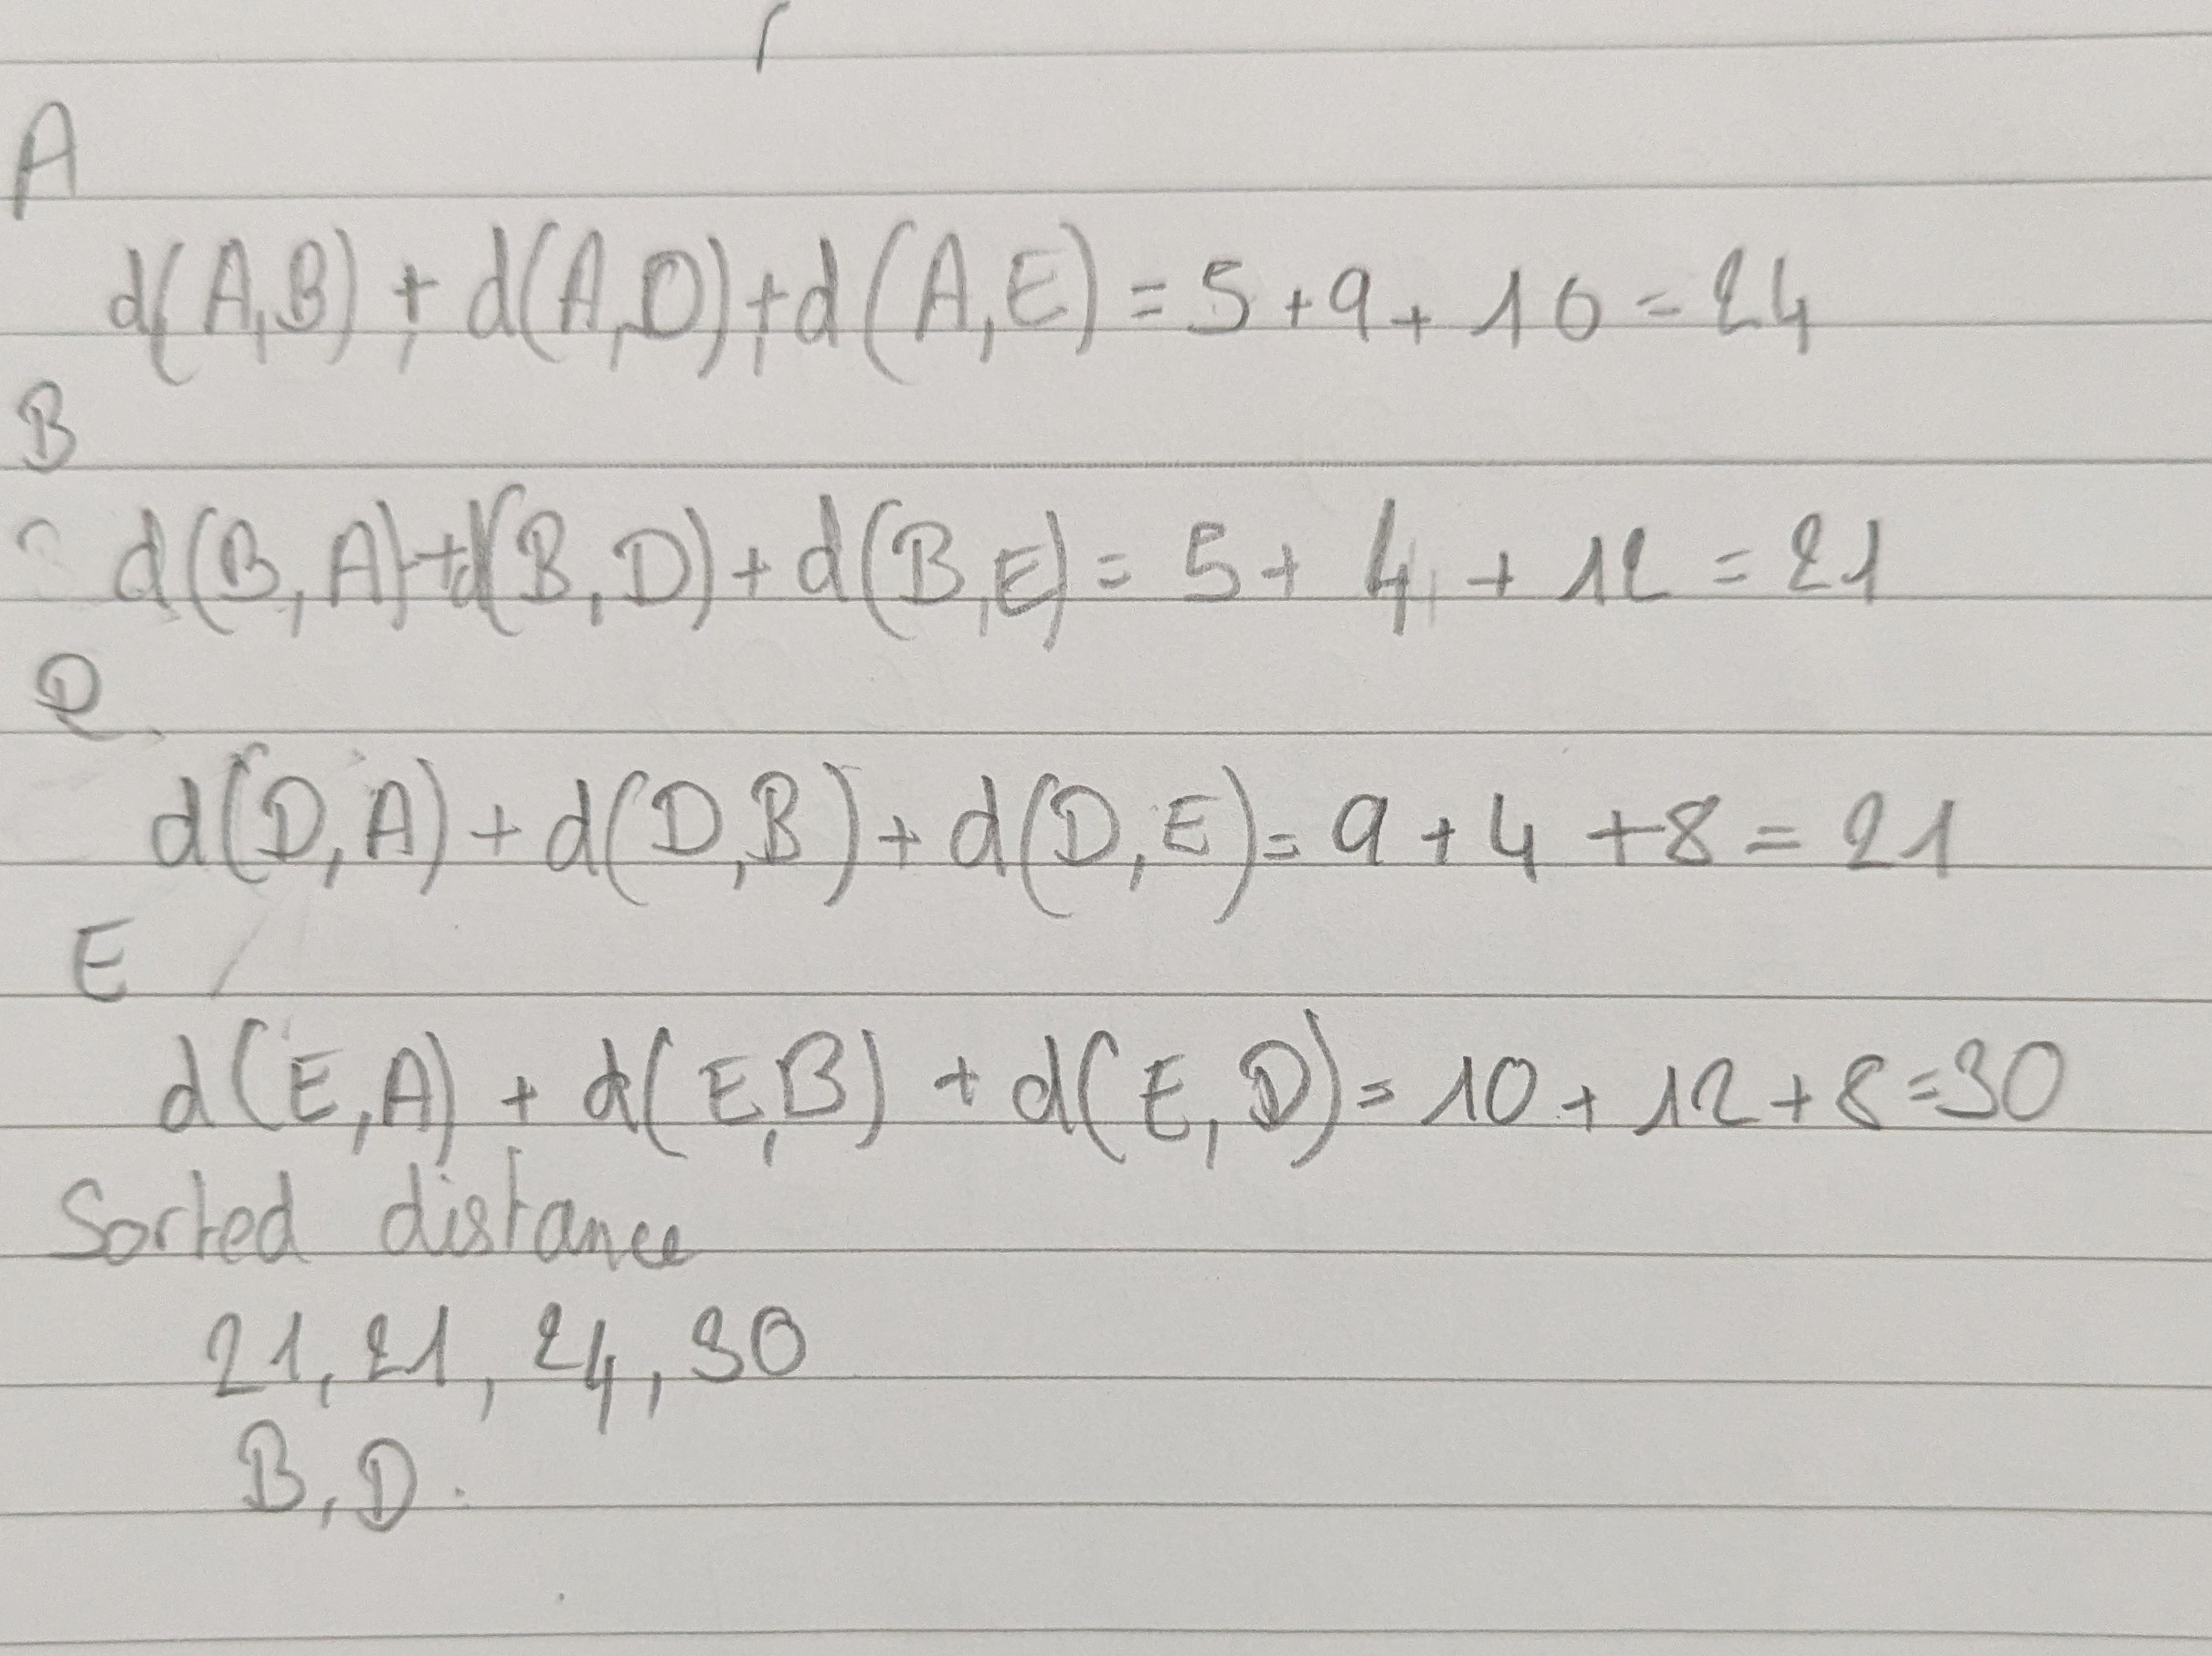 A
d(A,B) + d(A,D) + d(A,E) = 5 + 9 + 10 = 24
B
d(B,A) + d(B,D) + d(B,E) = 5 + 4 + 12 = 21
D
d(D,A) + d(D,B) + d(D,E) = 9 + 4 + 8 = 21
E
d(E,A) + d(E,B) + d(E,D) = 10 + 12 + 8 = 30
Sorted distance
21, 21, 24, 30
B, D.